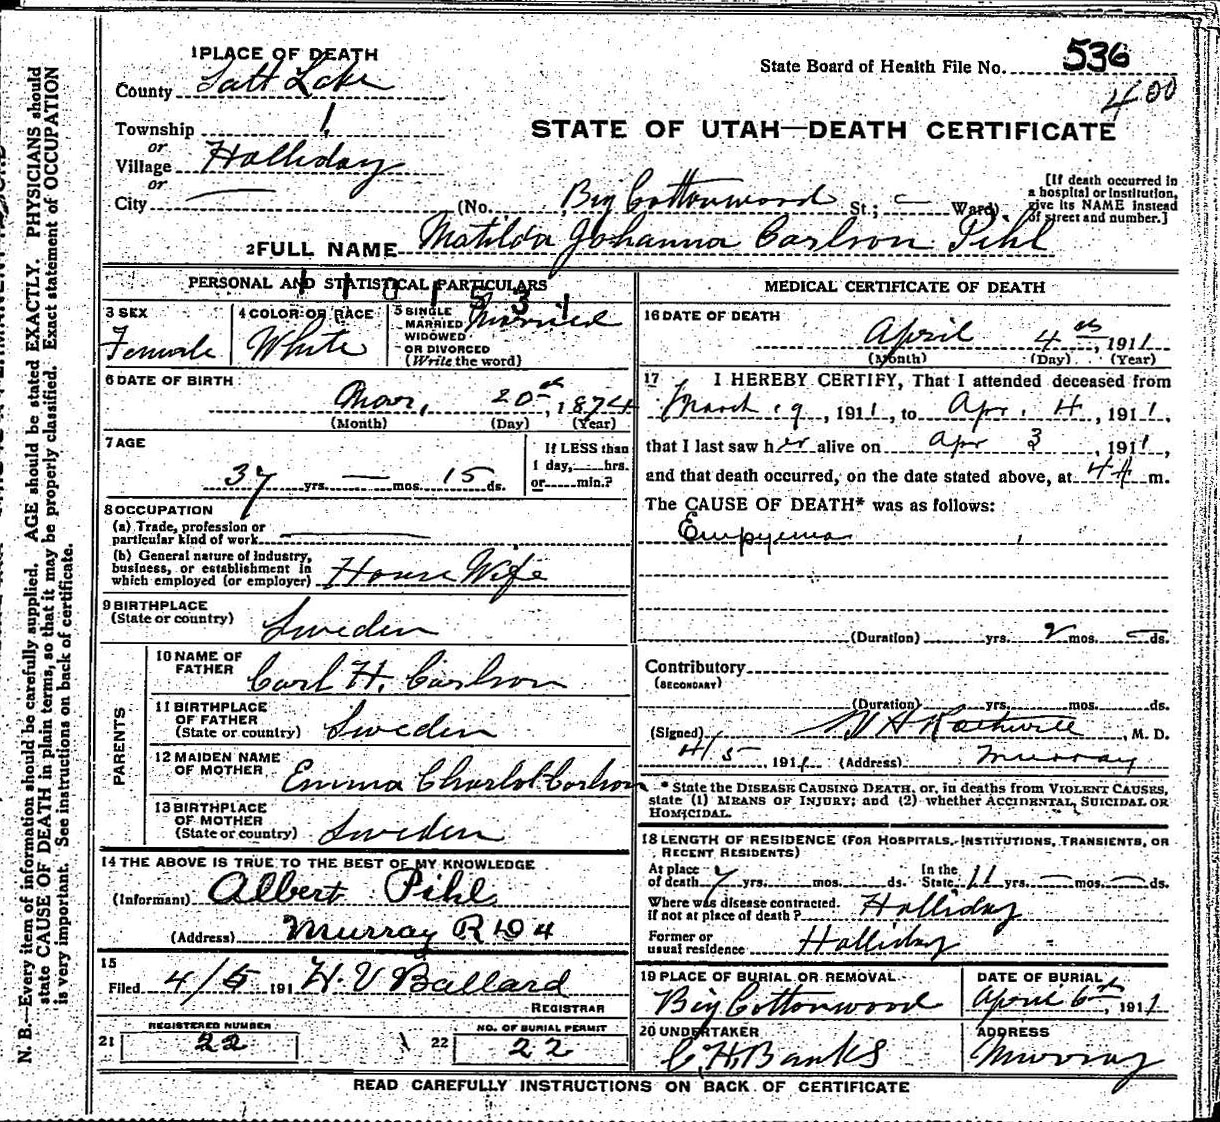 1 PLACE OF DEATH
County Salt Lake
Township 1
or
Village Halliday
or
City
State Board of Health File No. 536
400
STATE OF UTAH—DEATH CERTIFICATE
(No. Big Cottonwood St.; Ward)
[If death occurred in a hospital or institution, give its NAME instead of street and number.]
2 FULL NAME Matilda Johanna Carlson Pihl
PERSONAL AND STATISTICAL PARTICULARS
3 SEX
Female
4 COLOR OR RACE
White
5 SINGLE
MARRIED
WIDOWED
OR DIVORCED
(Write the word)
Married
6 DATE OF BIRTH
Mar. 20th, 1874
(Month) (Day) (Year)
7 AGE
37 yrs. — mos. 15 ds.
If LESS than
1 day, hrs.
or min.?
8 OCCUPATION
(a) Trade, profession or
particular kind of work
(b) General nature of industry,
business, or establishment in
which employed (or employer) House Wife
9 BIRTHPLACE
(State or country) Sweden
PARENTS
10 NAME OF
FATHER Carl H. Carlson
11 BIRTHPLACE
OF FATHER
(State or country) Sweden
12 MAIDEN NAME
OF MOTHER Emma Charlot Carlson
13 BIRTHPLACE
OF MOTHER
(State or country) Sweden
14 THE ABOVE IS TRUE TO THE BEST OF MY KNOWLEDGE
(Informant) Albert Pihl
(Address) Murray R D 4
15
Filed 4/5 191 H. V Ballard
REGISTRAR
21 REGISTERED NUMBER
22
22 NO. OF BURIAL PERMIT
22
MEDICAL CERTIFICATE OF DEATH
16 DATE OF DEATH
April 4th, 1911
(Month) (Day) (Year)
17 I HEREBY CERTIFY, That I attended deceased from
March 9, 1911, to Apr. 4, 1911,
that I last saw her alive on Apr 3, 1911,
and that death occurred, on the date stated above, at 4 A m.
The CAUSE OF DEATH* was as follows:
Empyema
(Duration) yrs. 2 mos. — ds.
Contributory
(SECONDARY)
(Duration) yrs. mos. ds.
(Signed) H Rothwell, M. D.
4/5, 1911 (Address) Murray
* State the DISEASE CAUSING DEATH, or, in deaths from VIOLENT CAUSES,
state (1) MEANS OF INJURY; and (2) whether ACCIDENTAL, SUICIDAL OR
HOMICIDAL.
18 LENGTH OF RESIDENCE (FOR HOSPITALS, INSTITUTIONS, TRANSIENTS, OR
RECENT RESIDENTS)
At place
of death 7 yrs. mos. ds. In the
State 11 yrs. — mos. — ds.
Where was disease contracted.
if not at place of death? Halliday
Former or
usual residence Halliday
19 PLACE OF BURIAL OR REMOVAL
Big Cottonwood
DATE OF BURIAL
April 6th, 1911
20 UNDERTAKER
C. H. Banks
ADDRESS
Murray
READ CAREFULLY INSTRUCTIONS ON BACK OF CERTIFICATE
N. B.—Every item of information should be carefully supplied. AGE should be stated EXACTLY. PHYSICIANS should
state CAUSE OF DEATH in plain terms, so that it may be properly classified. Exact statement of OCCUPATION
is very important. See instructions on back of certificate.